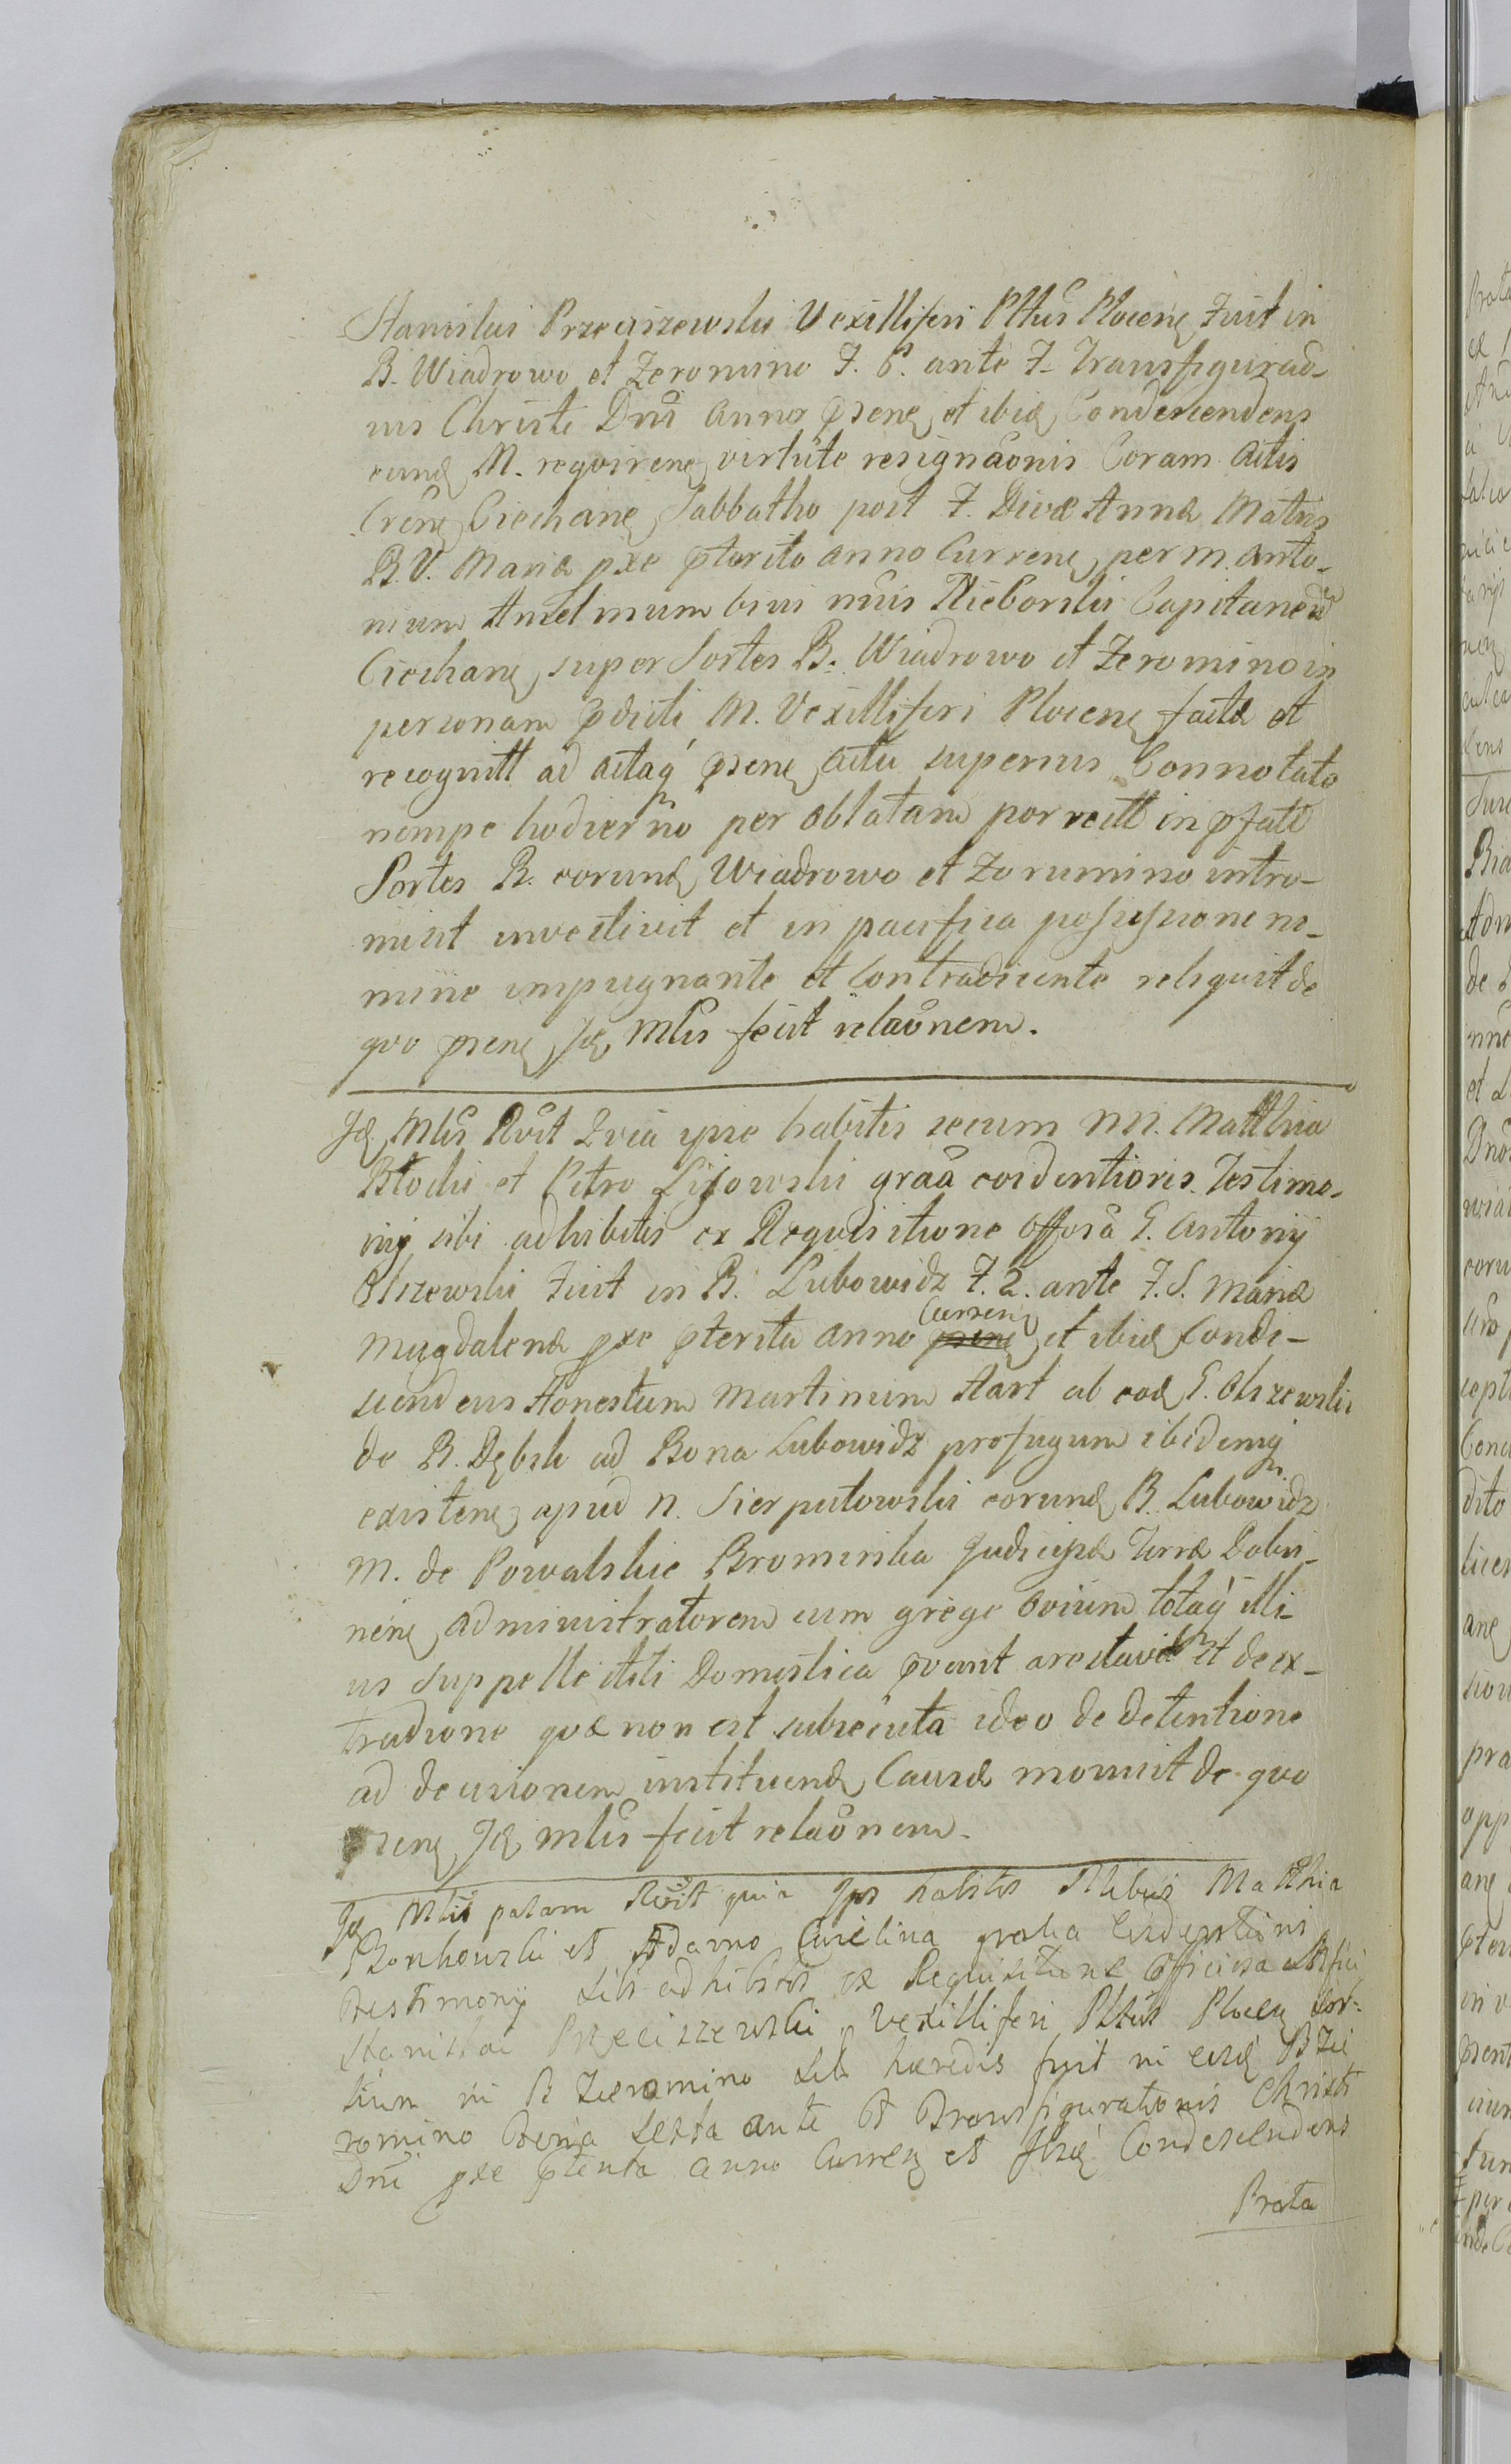 Stanislai Przeciszewski Vexilliferi Pltus Plocens Fuit in
B. Wiadrowo et Zeromino F. 6. ante F. Transfigurao-
nis Christi Dni Anno psenq et ibiq Condescendens
eundq M. requirenq virtute resignaonis Coram Actis
Crensq Ciechanq Sabbatho post F. Divæ Annæ Matris
B. V. Mariæ pxe pterito anno Currenq per M. Anto-
nium Anzelmum bini nūis Nieborski Capitaneū
Ciechanq super Sortes B. Wiadrowo et Zeromino in
personam pdicti M. Vexilliferi Plocenq factæ et
recognitt ad actaq́ psenq actu superius Connotato
nempe hodierno per oblatam porrectt in pfatt
Sortes B. eorundq Wiadrowo et Zorumino intro-
misit investivit et in pacifica possessione ne-
mine impugnante et Contradicente reliquit de
quo psenq Jdq Mlis fecit relaonem.
Jdq Mlis Rvit Qvia ipse habitis secum NN. Matthia
Błocki et Petro Lisowski graa evidentioris Testimo-
nij sibi adhibitis ex Requisitione Offosa G. Antonij
Olszewski Fuit in B. Lubowidz F. 2. ante F. S. Mariæ
Magdalenæ pxe pterita anno Currenq psenq et ibiq Conde-
scendens Honestum Martinum Hart ab eodq G. Olszewski
de B. Dębsk ad Bona Lubowidz profugum ibidemq
existenq apud N. Sierputowski eorundq B. Lubowidz
M. de Powalskie Bromirska Judicissæ Terræ Dobri-
nenq administratorem cum grege ovium totaq́ illi-
us suppellectili Domestica qvant arestavit et de ex-
traditione quæ non est subsecuta ideo de detentione
ad decisionem instituendq Causæ monuit de quo
psenq Jdq mlis fecit relaonem.
Jdq Mlis palam Rvit quia Ips habitis Nlibus Matthia
Bonkowski et Adamo Curelina gratia Evidentioris
Testimonij sibi adhibitis ex Requisitione Officiosa Mfici
Stanislai Przeciszewski Vexilliferi Pltus Plocenq Sor-
tium in B Zieromino sibi hæredis fuit in eisdq B Zie
romino Feria Sexta ante F Transfigurationis Christi
Dni pxe pterita anno Currenq et Ibiq Condescendens
Prata